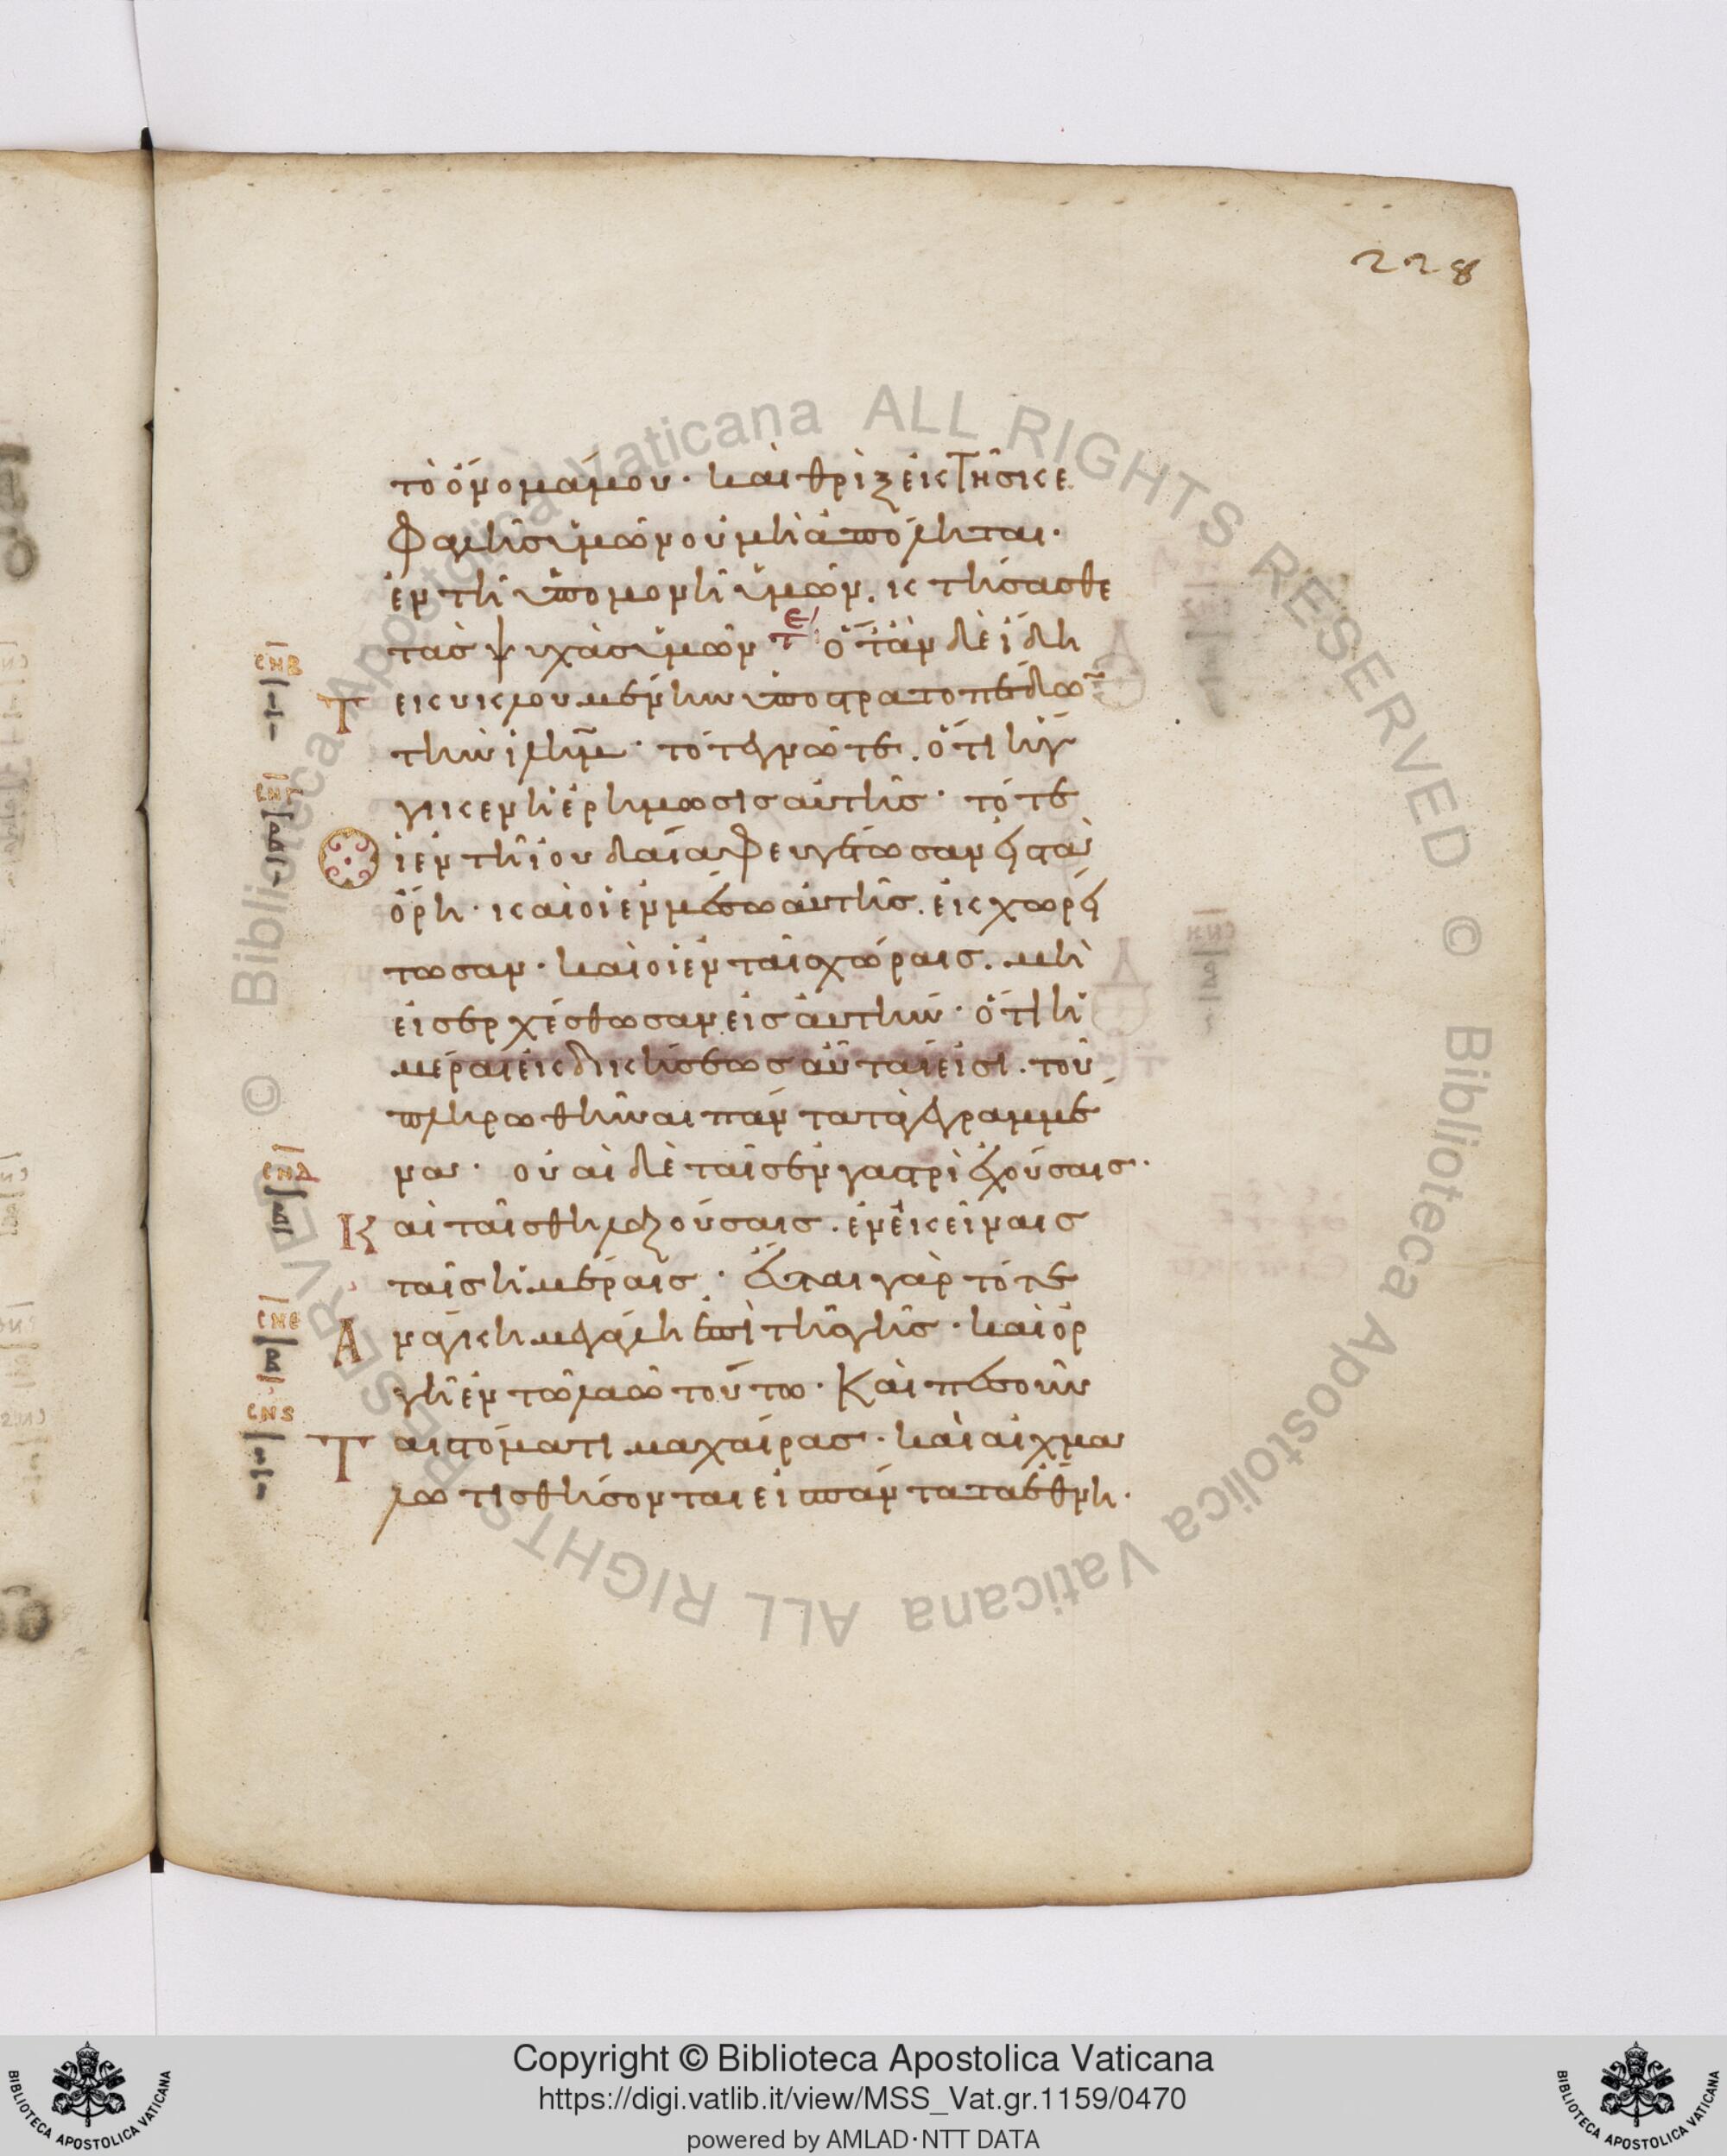 228
τὸ ὄνομά μου· καὶ θρὶξ ἐκ τῆς κε
φαλῆς ὑμῶν οὐ μὴ ἀπόληται·
ἐν τῆ ὑπομονῆ ὑμῶν. κτήσασθε
τὰς ψυχὰς ὑμῶν τε ὅταν δὲ ἴδη
Τ ε κυκλουμένην ὑπὸ στρατοπέδω̅
τὴν ἰλη̅μ· τότε γνῶτε. ὅτι ἤγ
γικεν ἡ ἐρήμωσις αὐτῆς· τότε
ἱ ἐν τῆ ἰουδαία φευγέτωσαν εἰς τὰ
ὄρη· καὶ οἱ ἐν μέσω αὐτῆς. ἐκχωρεί
τωσαν· καὶ οἱ ἐν ταῖς χώραις. μὴ
εἰσερχέσθωσαν εἰς αὐτήν· ὅτι ἡ
μέραι ἐκδικήσεως αὗται εἰσι. τοῦ
πληρωθῆναι πάντα τὰ γεγραμμέ
να· οὐαὶ δὲ ταῖς ἐν γαστρὶ ἐχούσαις·
Κ αὶ ταῖς θηλαζούσαις. ἐν ἐκείναις
ταῖς ἡμέραις· ἔσται γὰρ τότε
Α νάγκη μεγάλη ἐπὶ τῆς γῆς· καὶ ὀρ
γὴ ἐν τῶ λαῶ τούτω· Καὶ πεσοῦν
Τ αι στόματι μαχαίρας· καὶ αἰχμα
λωτισθήσονται εἰς πάντα τὰ ἔθνη·
CΝΒ
CΝΓ
CΝΔ
CΝΕ
CΝS
© Biblioteca Apostolica Vaticana ALL RIGHTS RESERVED © Biblioteca Apostolica Vaticana ALL RIGHTS RESERVED
Copyright © Biblioteca Apostolica Vaticana
https://digi.vatlib.it/view/MSS_Vat.gr.1159/0470
powered by AMLAD·NTT DATA
BIBLIOTECA APOSTOLICA VATICANA
BIBLIOTECA APOSTOLICA VATICANA